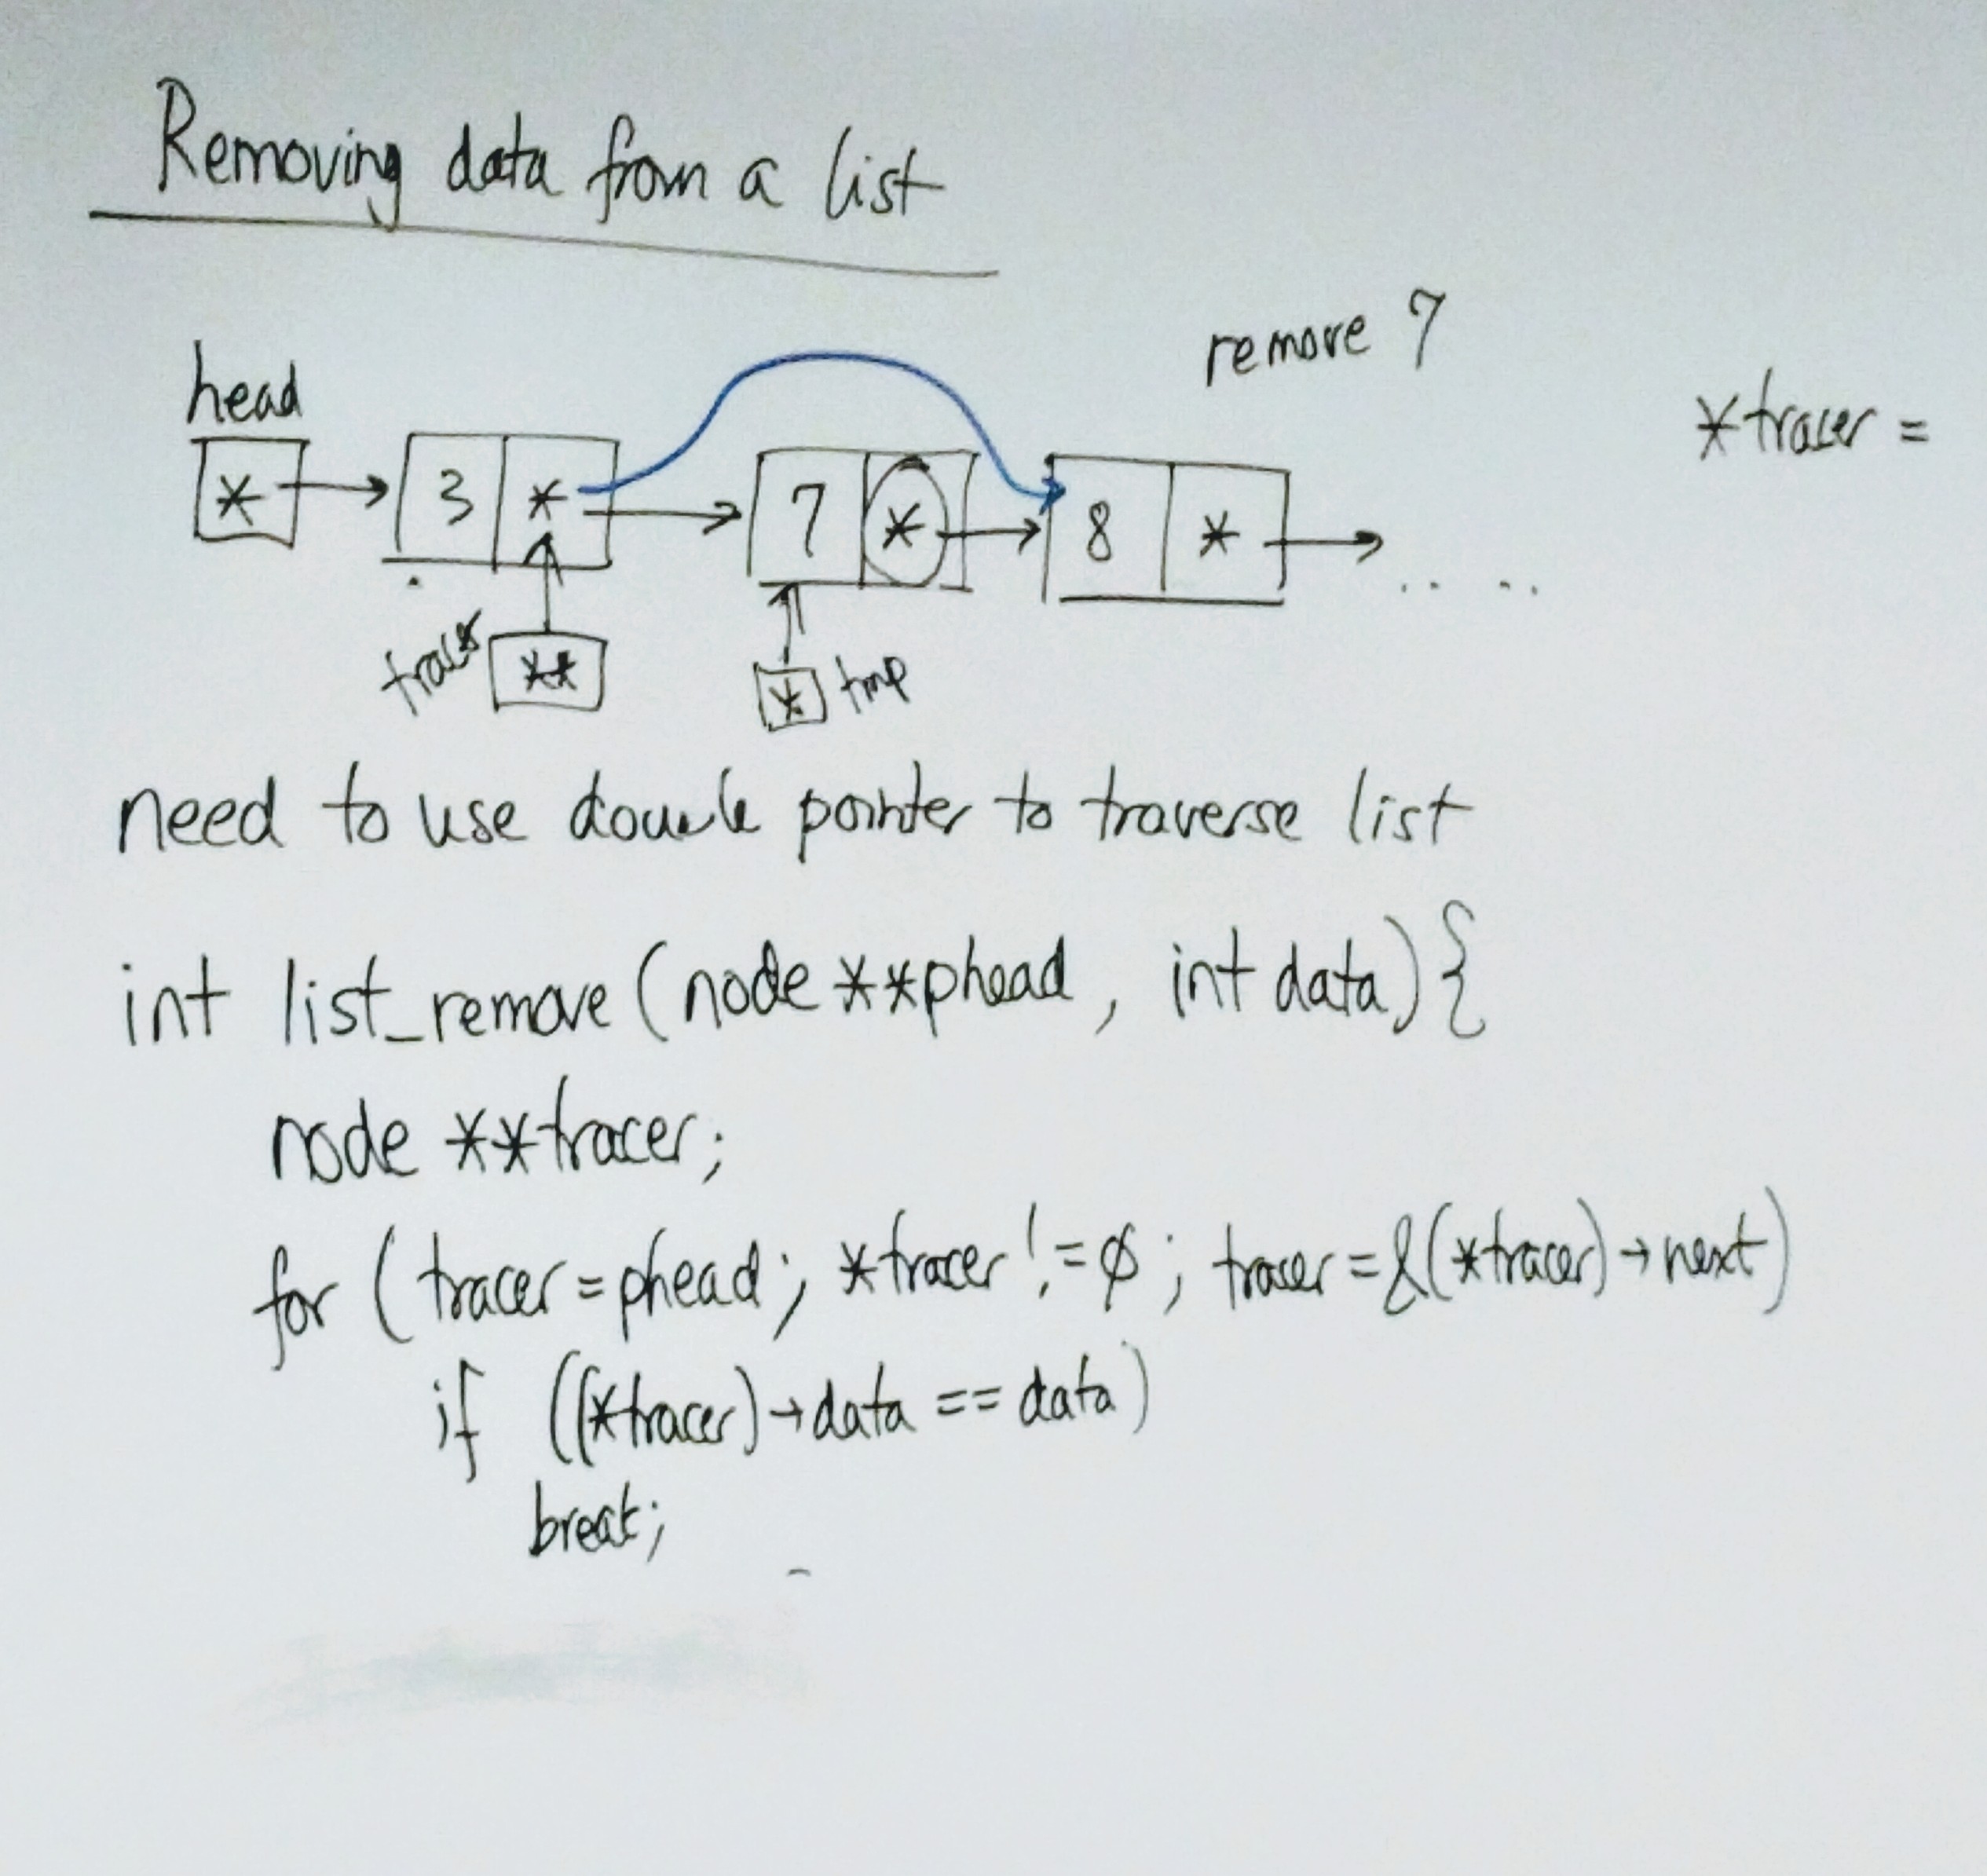 Removing data from a list
remove 7
*tracer =
head
* 3 * 7 * 8 * .. ..
tracer ** * tmp
need to use double pointer to traverse list
int list_remove (node **phead, int data) {
node **tracer;
for (tracer = phead; *tracer != 0; tracer = &(*tracer)→next)
if ((*tracer)→data == data)
break;